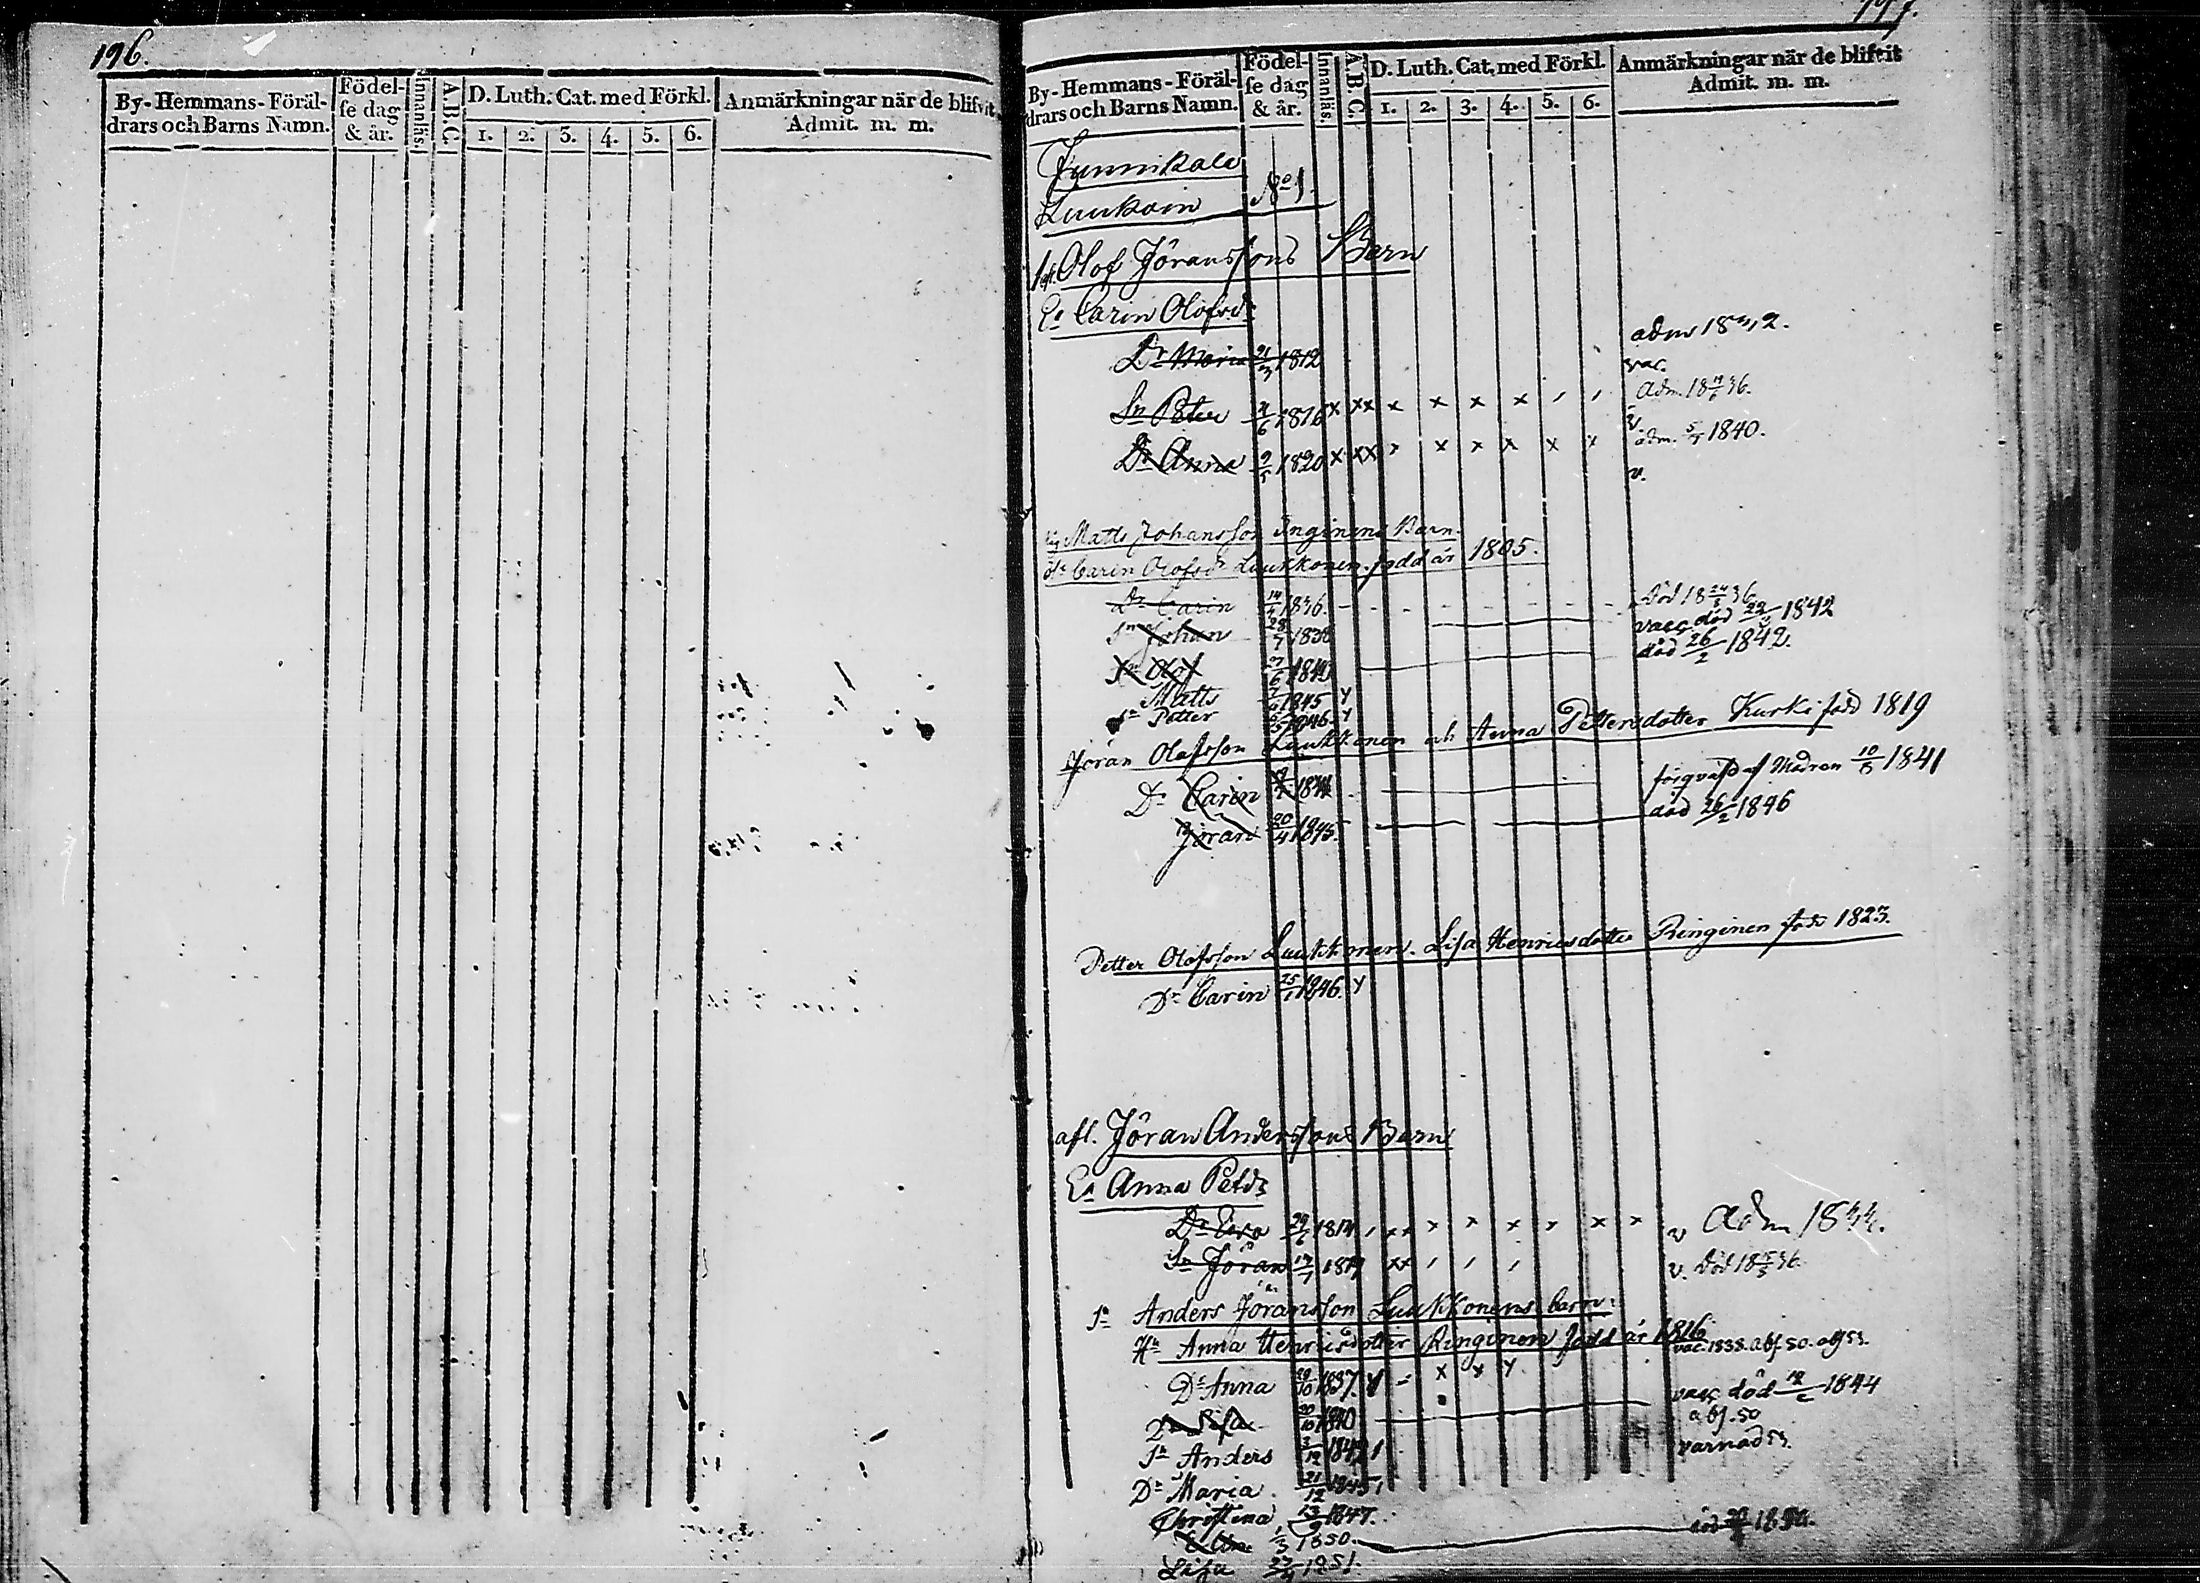 196.
By-Hemmans-Föräl-
drars och Barns Namn.
Födel-
se dag
& år.
Innanläs.
A.B.C.
D. Luth. Cat. med Förkl.
1. 2. 3. 4. 5. 6.
Anmärkningar när de blifvit
Admit. m. m.
197.
By-Hemmans-Föräl-
drars och Barns Namn.
Födel-
se dag
& år.
Innanläs.
A.B.C.
D. Luth. Cat. med Förkl.
1. 2. 3. 4. 5. 6.
Anmärkningar när de blifvit
Admit. m. m.
Junnikala
Luukoin No 1.
Olof Jöranssons Barn
Ea Carin Olofsdr
Dr Maria 21/3 1812 adm 1832.
vac.
Sn Peter 1816 x xx x x x x / / Adm. 36.
v.
Dr Anna 9/5 1820 x xx x x x x x adm. 1840.
v.
Matts Johansson Inginens Barn.
Carin Olofsdr Luukkonen. född år 1805.
Dr Carin 14/4 1836. död 18 24/8 36
Sn Johan 28/7 1838 vacc. död 1842
Sn Olof 27/6 1840 död 26/2 1842.
Matts 1845 y
Sn Petter 1846. y
Jöran Olofsson Luukkonen och Anna Pettersdotter Kurki född 1819
Dr Carin förqväfd af Modren 10/5 1841
Jöran 20/4 1845. död 26/2 1846
Petter Olofsson Luukkonen. Lisa Henricsdotter Ringinen född 1823.
Dr Carin 25/1 1846. y
afl. Jöran Anderssons Barn
Ea Anna Petdr
Dr Eva 29/6 1814 / xx x x x x x x v Adm 1833.
Sn Jöran 17/1 1819 xx / / / v. död 36.
Sn Anders Jöransson Luukkonens barn:
Hu Anna Henricsdotter Ringinen född år 1816
Dr Anna 29/10 1837. x x y vac. 1838. abf. 50.
Lisa 20/10 1840 vacc död 1844
Sn Anders 3/12 1842 abf. 50
Dr Maria. 21/12 1845 varnad 53.
Christina 13/9 1847.
1/3 1850. död
Lisa 1851.